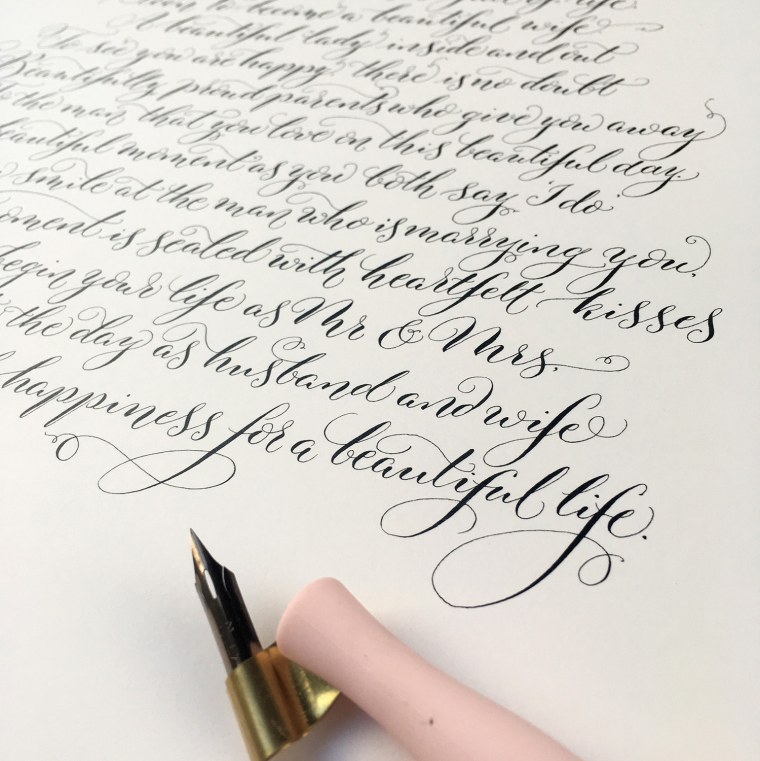 of life
soon to become a beautiful wife.
A beautiful lady inside and out
To see you are happy there is no doubt
Beautifully proud parents who give you away
the man that you love on this beautiful day.
beautiful moment as you both say 'I do'
smile at the man who is marrying you.
moment is sealed with heartfelt kisses
begin your life as Mr & Mrs.
the day as husband and wife
happiness for a beautiful life.